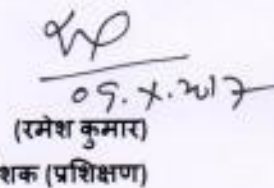 09.X.2017
(रमेश कुमार)
शक (प्रशिक्षण)